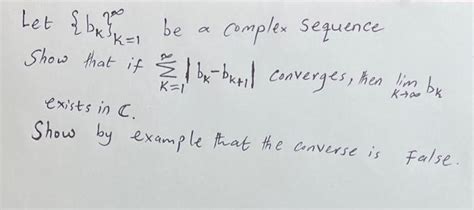 Let {bₖ}ₖ₌₁^∞ be a complex sequence
Show that if ∞∑ₖ₌₁ |bₖ-bₖ₊₁| converges, then lim ₖ→∞ bₖ
exists in ℂ.
Show by example that the converse is False.